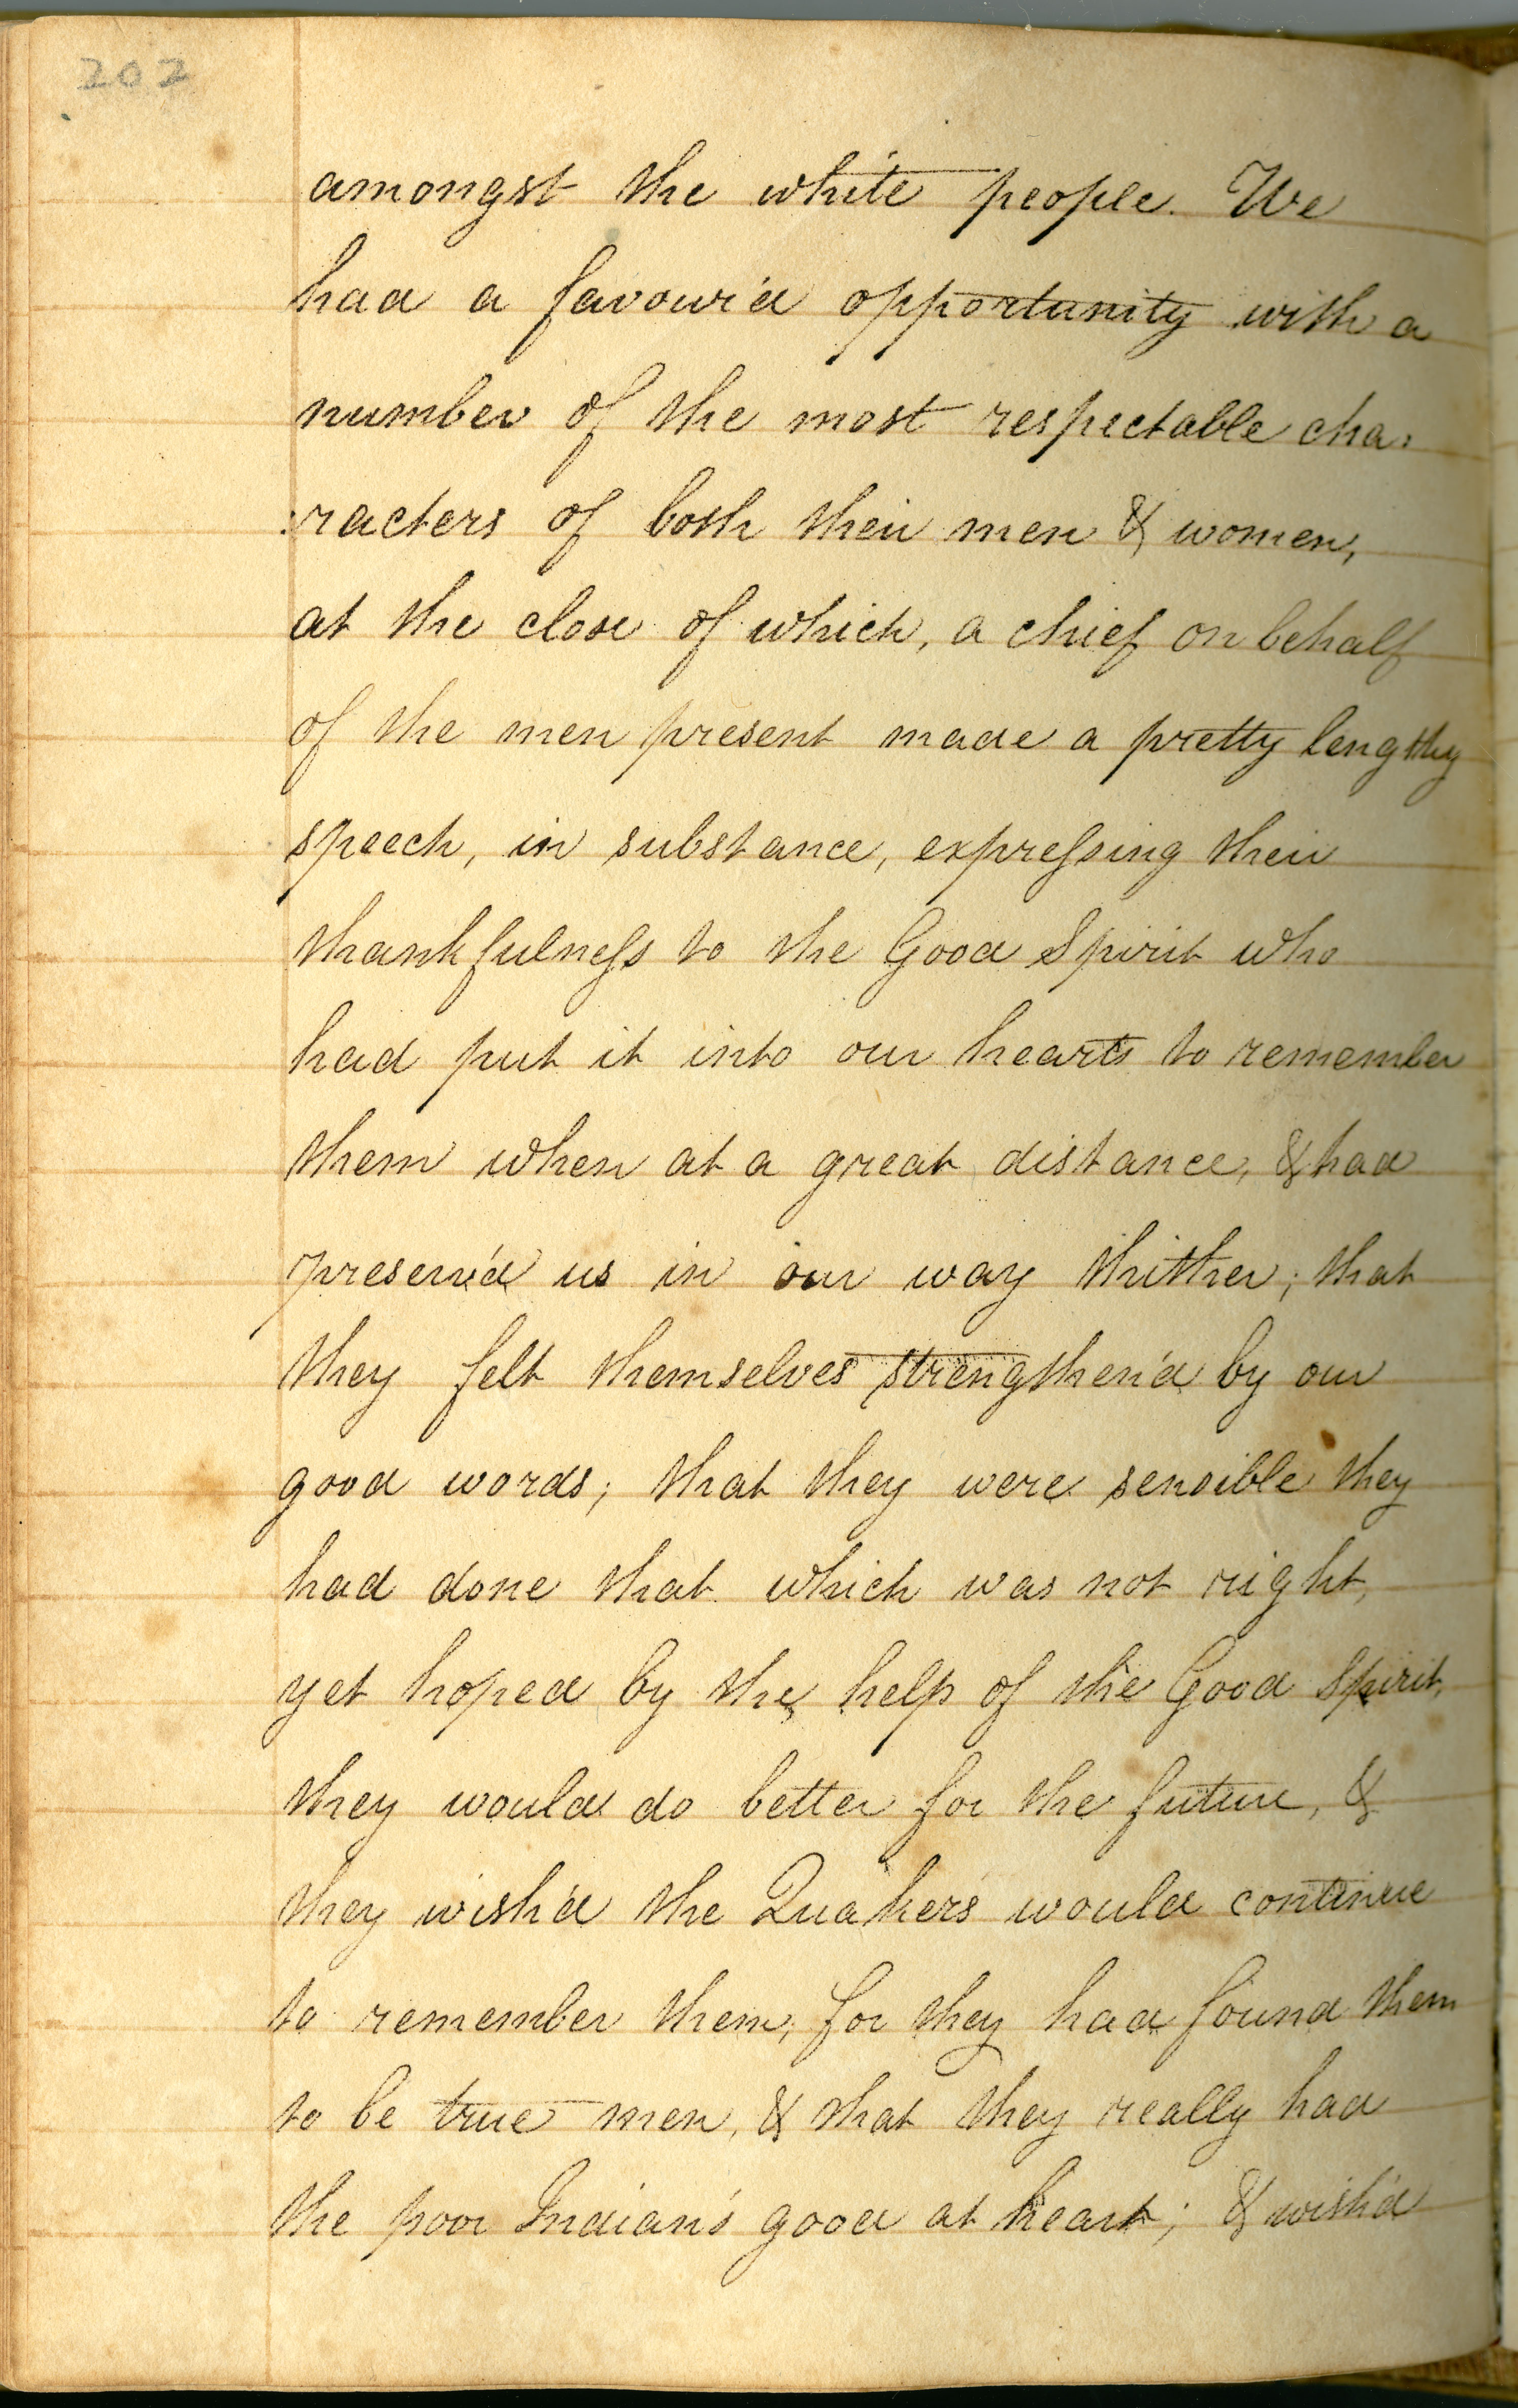 202
amongst the white people. We
had a favour'd opportunity with a
number of the most respectable cha:
:racters of both their men & women,
at the close of which, a chief on behalf
of the men present made a pretty lengthy
speech, in substance, expreſsing their
thankfulneſs to the Good Spirit who
had put it into our hearts to remember
them when at a great distance, & had
preserv'd us in our way thither; that
they felt themselves strengthen'd by our
good words; that they were sensible they
had done that which was not right,
yet hoped by the help of the Good Spirit,
they would do better for the future, &
they wish'd the Quakers would continue
to remember them, for they had found them
to be true men, & that they really had
the poor Indian's good at heart; & wish'd